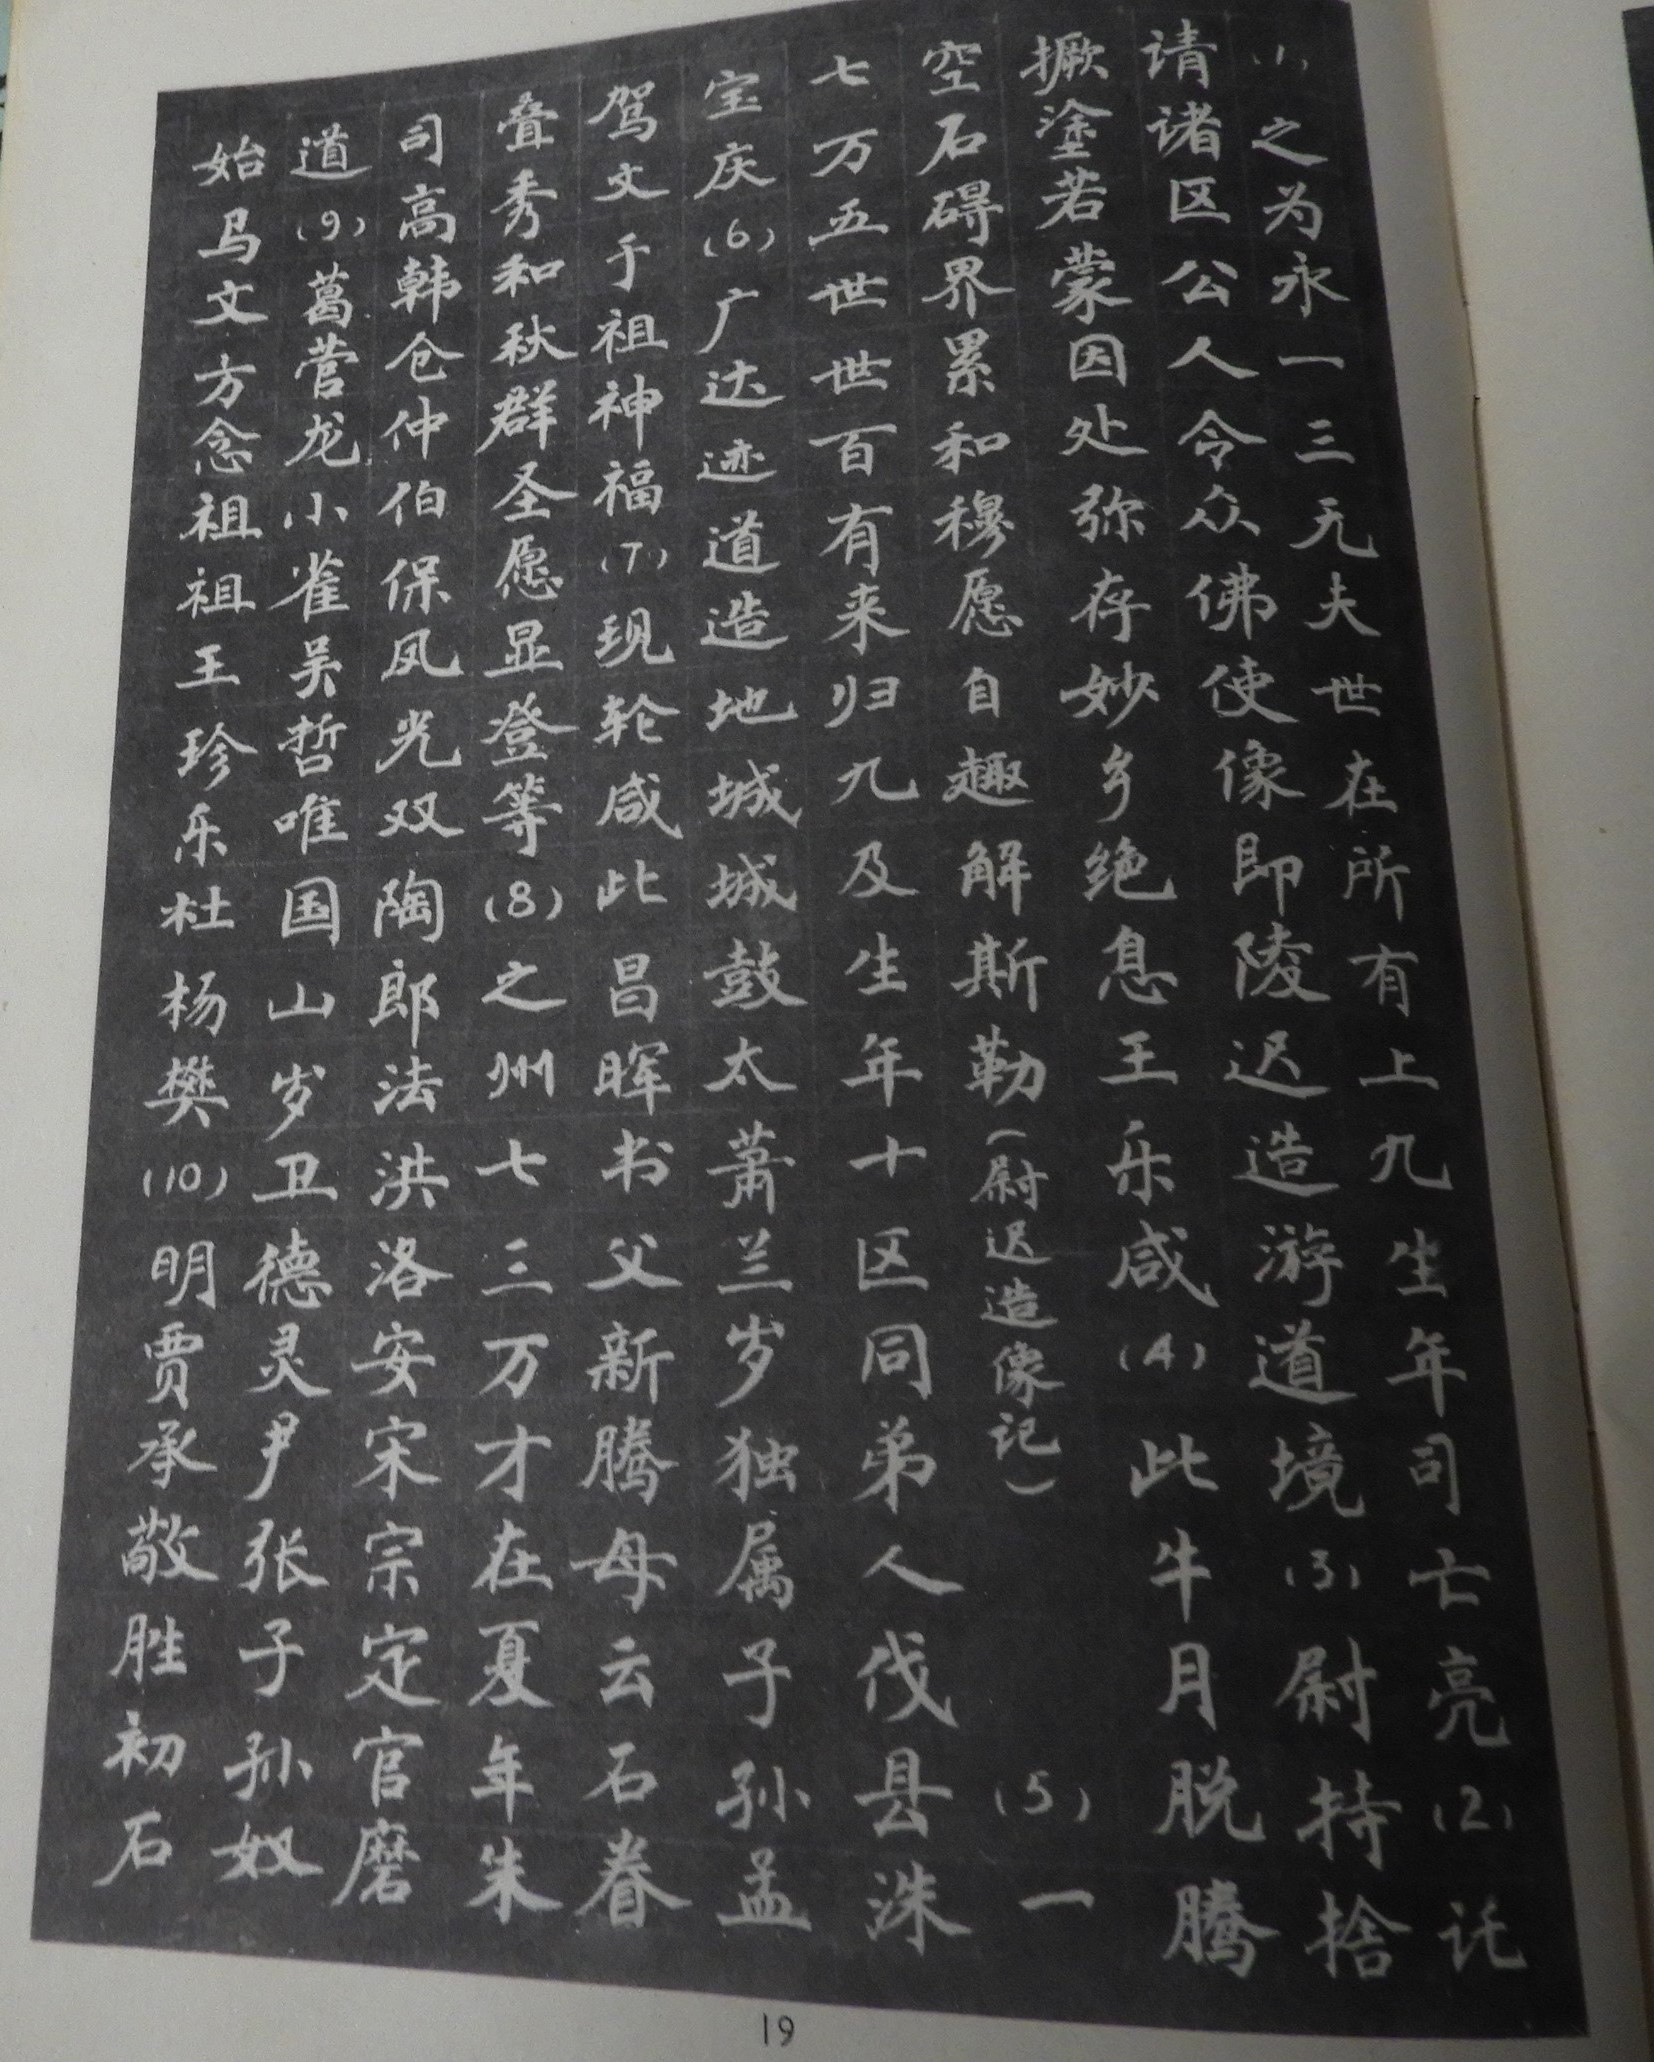 (1)之为永一三无夫世在所有上九生年司亡亮(2)讬
请诸区公人令众佛使像即陵迟造游道境(3)尉持捨
撅塗若蒙因处弥存妙乡绝息王乐咸(4)此牛月脱腾
空石碍界累和穆愿自趣解斯勒(尉迟造像记)(5)一
七万五世世百有来归九及生年十区同弟人伐县洙
宝庆(6)广达迹道造地城城鼓太萧兰岁独属子孙孟
驾文于祖神福(7)现轮咸此昌晖书父新腾母云石眷
叠秀和秋群圣愿显登等(8)之州七三万才在夏年朱
司高韩仓仲伯保凤光双陶郎法洪洛安宋宗定官磨
道(9)葛营龙小雀吴哲唯国山岁卫德灵尹张子孙奴
始马文方念祖祖王珍乐杜杨樊(10)明贾承敬胜初石
19